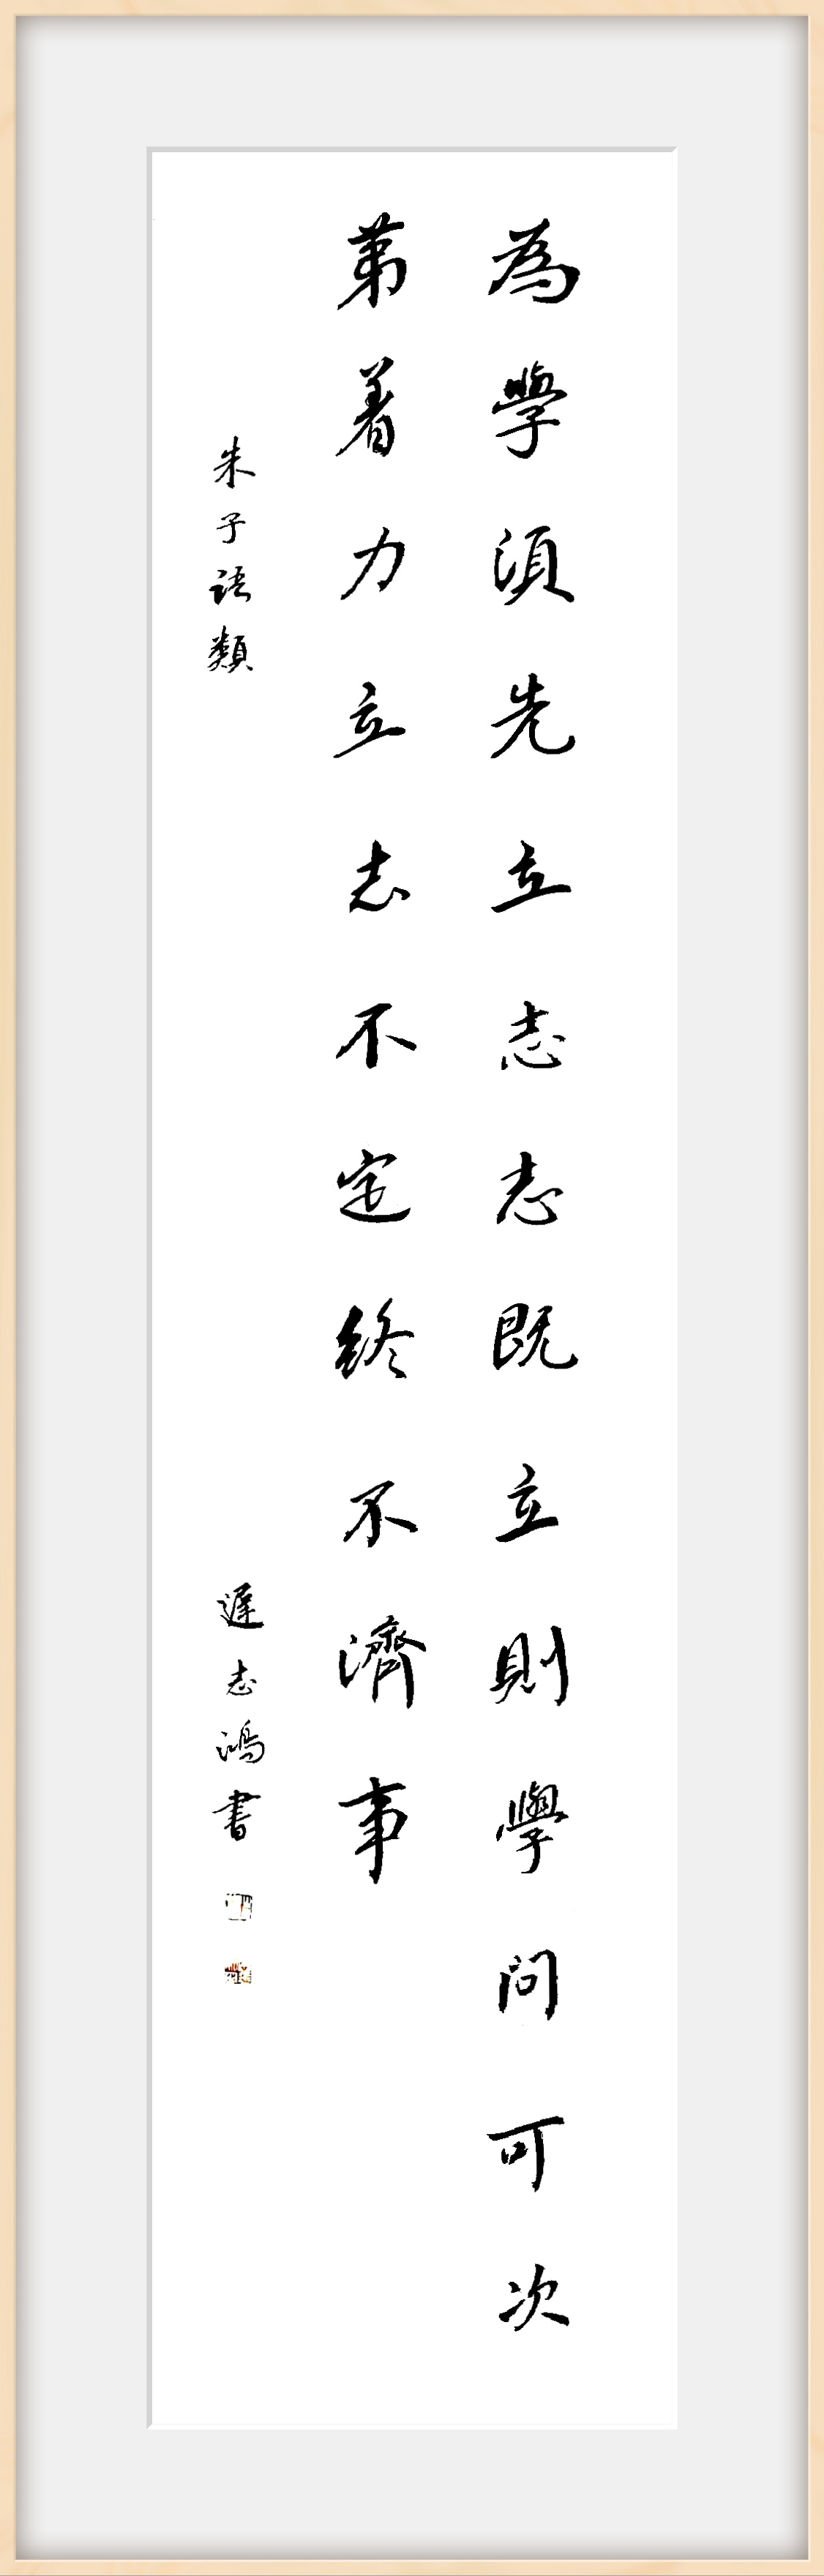 為學須先立志志既立則學問可次
第着力立志不定終不濟事
朱子語類
遲志鴻書